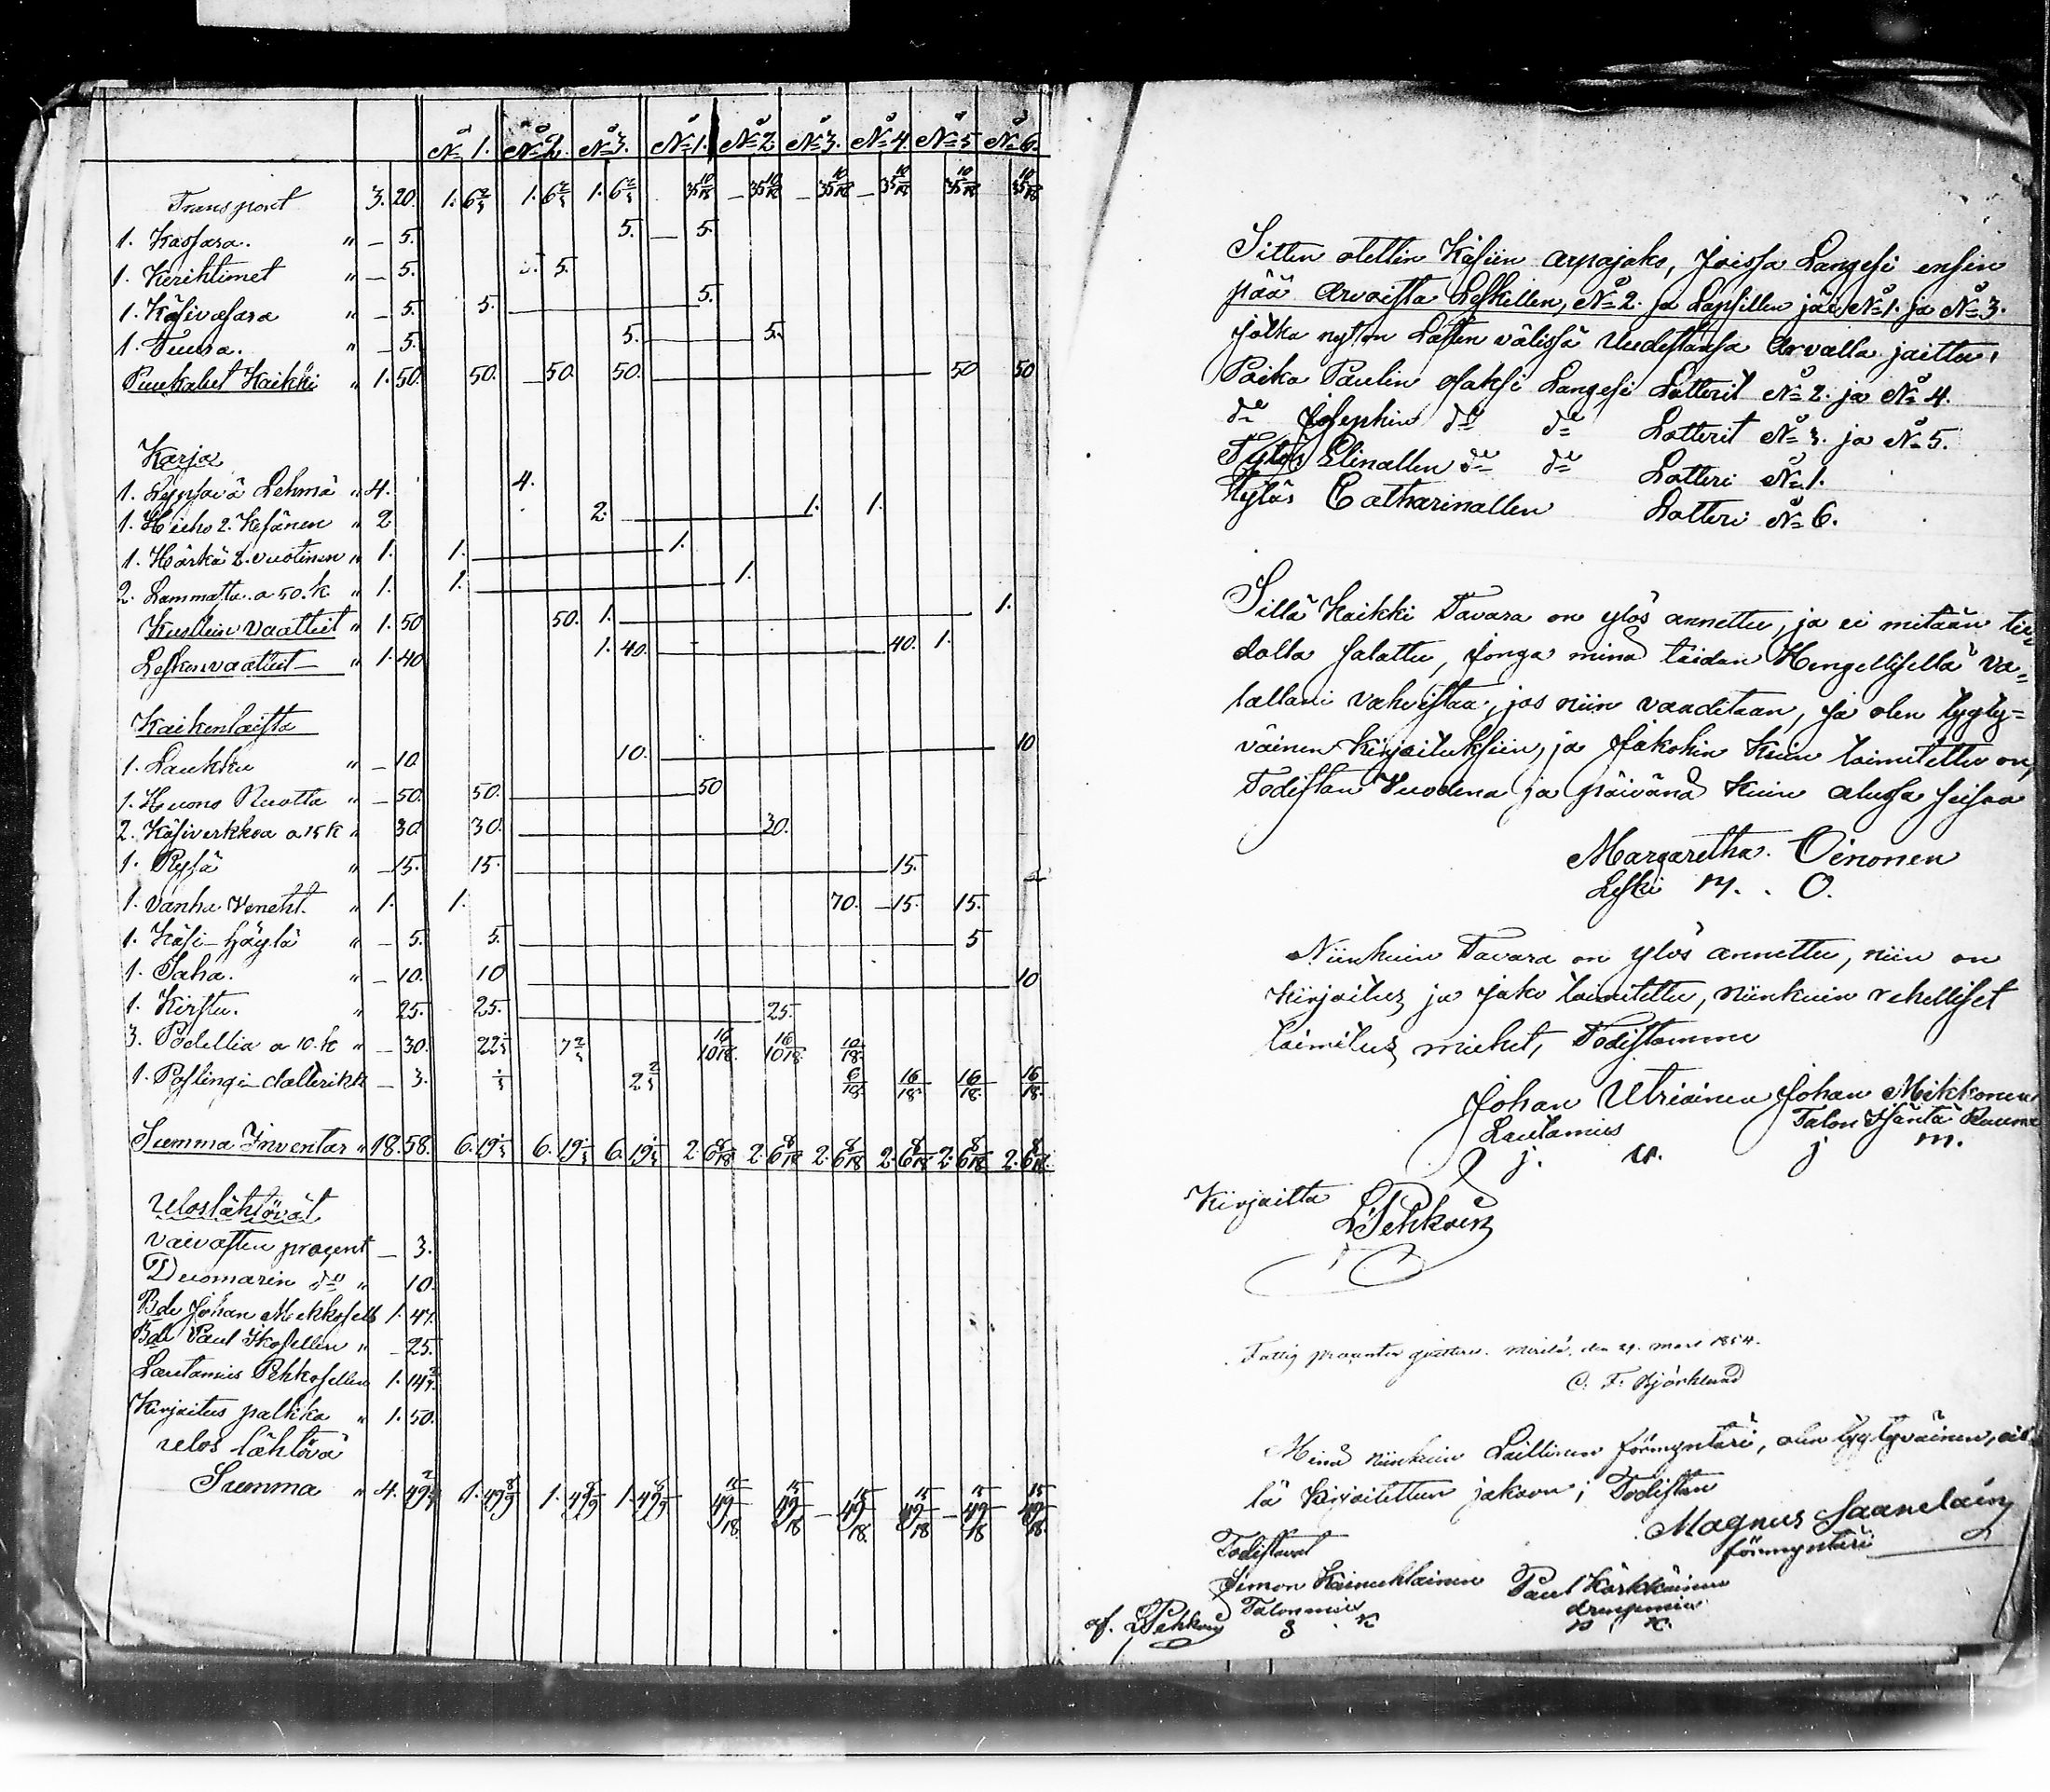 N:o 1. N:o 2. N:o 3. N:o 1. N:o 2. N:o 3. N:o 4. N:o 5 N:o 6.
Transport 3. 20. 1. 6 2/3 1. 6 2/3 1. 6 2/3 35 10/18 – 35 10/18 – 35 10/18 – 35 10/18 35 10/18 35 10/18
1. Kassara. " – 5. 5. – 5.
1. Kerihtimet " – 5. 5.
1. Käsivasara " – 5. 5. 5.
1. Tuura. " – 5. 5. 5.
Puukalut Kaikki " 1. 50. 50. – 50. 50. 50 50
Karja
1. Lypsävä Lehmä " 4. 4.
1. Hieho 2. Kesänen " 2 2. 1. 1.
1. Härkä 2. vuotinen " 1. 1. 1.
2. Lammasta a 50. k. " 1. 1. 1.
Kuolluin vaatteet " 1. 50 50. 1. 1.
Lesken vaateet – " 1. 40 1. 40. 40. 1.
Kaikenlaista
1. Laukku " – 10. 10. 10
1. Huono Nuotta " – 50. 50. 50
2. Käsiverkkoa a 15 K " 30. 30. 30.
1. Rysä " – 15. 15. 15.
1. vanha Veneht. " 1. 1. 70. – 15. 15.
1. Käsi-höylä " – 5. 5. 5
1. Saha. " – 10. 10 10
1. Kirstu. " 25. 25. 25.
3. Podellia a 10. k " – 30. 22 1/3 7 2/3 10 16/18 10 16/18 10/18
1. Poslingi-dallrikk – 3. 1/3 2 2/3 6/18 16/18 16/18 16/18
Summa Inventar " 18. 58. 6. 19 1/3 6. 19 1/3 6. 19 1/3 2. 6 8/18 2. 6 8/18 2. 6 8/18 2. 6 8/18 2. 6 8/18 2. 6 8/18
Uloslähtövät
vaivasten prosent – 3.
Duomarin d:o " 10.
Bde Johan Mikkosell 1. 47.
Bde Paul Ikosellen " – 25.
Lautamies Pehkosellen 1. 14 2/7
Kirjoitus palkka " 1. 50.
ulos lähtövä
Summa " 4. 49 2/7 1. 49 8/9 1. 49 8/9 1. 49 8/9 49 15/18 49 15/18 – 49 15/18 49 15/18 – 49 15/18 49 15/18
Sitten otettin Käsiin arpajako, Joissa Langesi ensin
pää arvoista Leskellen, N:o 2. ja Lapsillen jäi N:o 1. ja N:o 3.
jotka nyt on Lasten välissä Uudestansa Arvalla jaittu,
Poika Paulin osaksi Langesi Lotterit N:o 2. ja N:o 4.
d:o Josephin d:o d:o Lotterit N:o 3. ja N:o 5.
Tytös Elinallen d:o d:o Lotteri N:o 1.
Tytös Catharinallen Lotteri N:o 6.
Sillä Kaikki Tavara on ylös annettu, ja ei mitään tie-
dolla salattu, Jonga minä taidan Hengellisellä va-
lallani vahvistaa, jos niin vaaditaan, ja olen tygty=
väinen Kirjoituksiin, ja Jakohin Kuin toimitettu on,
Todistan Vuodena ja päivänä kuin alussa seisoo
Margaretha. Oinonen
Leski M. . O.
Niinkuin Tavara on ylös annettu, niin on
Kirjoitus ja Jako toimitettu, niinkuin rehelliset
toimitus miehet, Todistamme
Johan Utriainen Johan Mikkonen
Lautamies Talon Isäntä
j. U. j M.
Kirjoitta
L Pehkoin
Fattig procenter qvitteras. den 29. Mars 1854.
C. F. Björklund
Minä niinkuin Laillinen förmyntäri, olen tygtyväinen,
lä Kirjoitettuun jakoon; Todistan
Magnus Saanelain
förmyntäri
Todistavat
Simon Kainuhlainen Paul Kärkkäinen
Talonmies drengimies
S . K P . K.
af. L Pehkoin